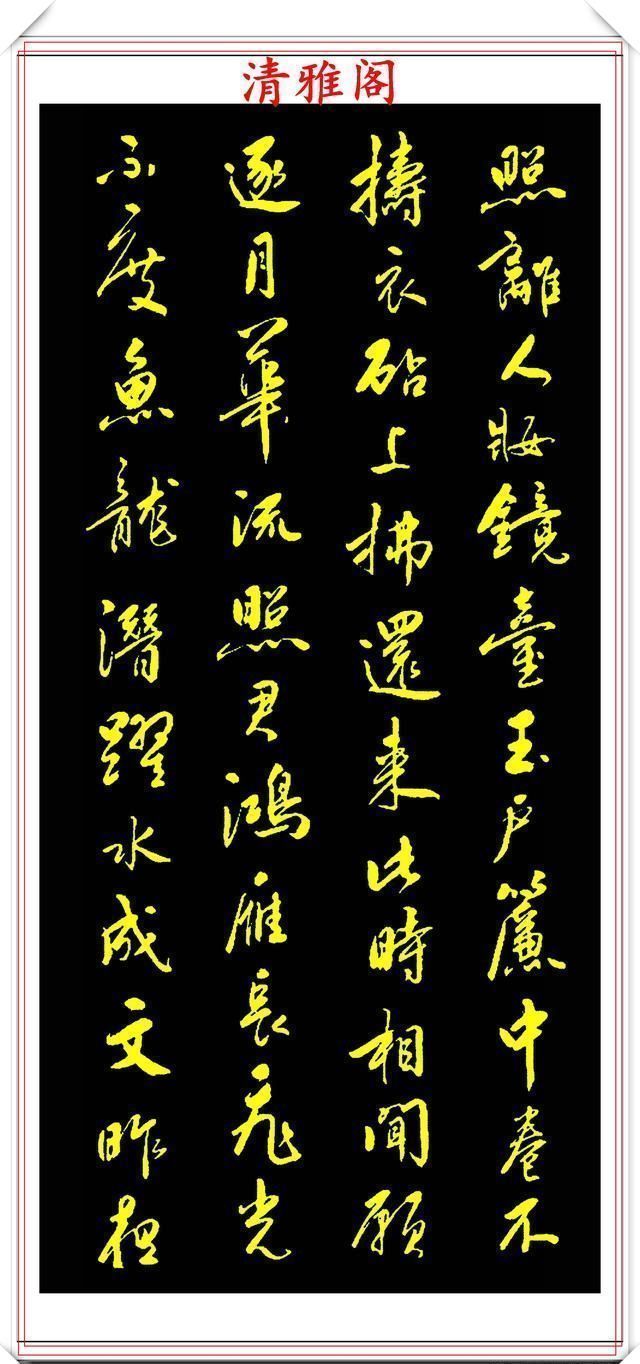 清雅阁
照離人妝鏡臺玉戶簾中卷不
擣衣砧上拂還来此時相聞願
逐月華流照君鴻雁長飛光
不度魚龍潛躍水成文昨